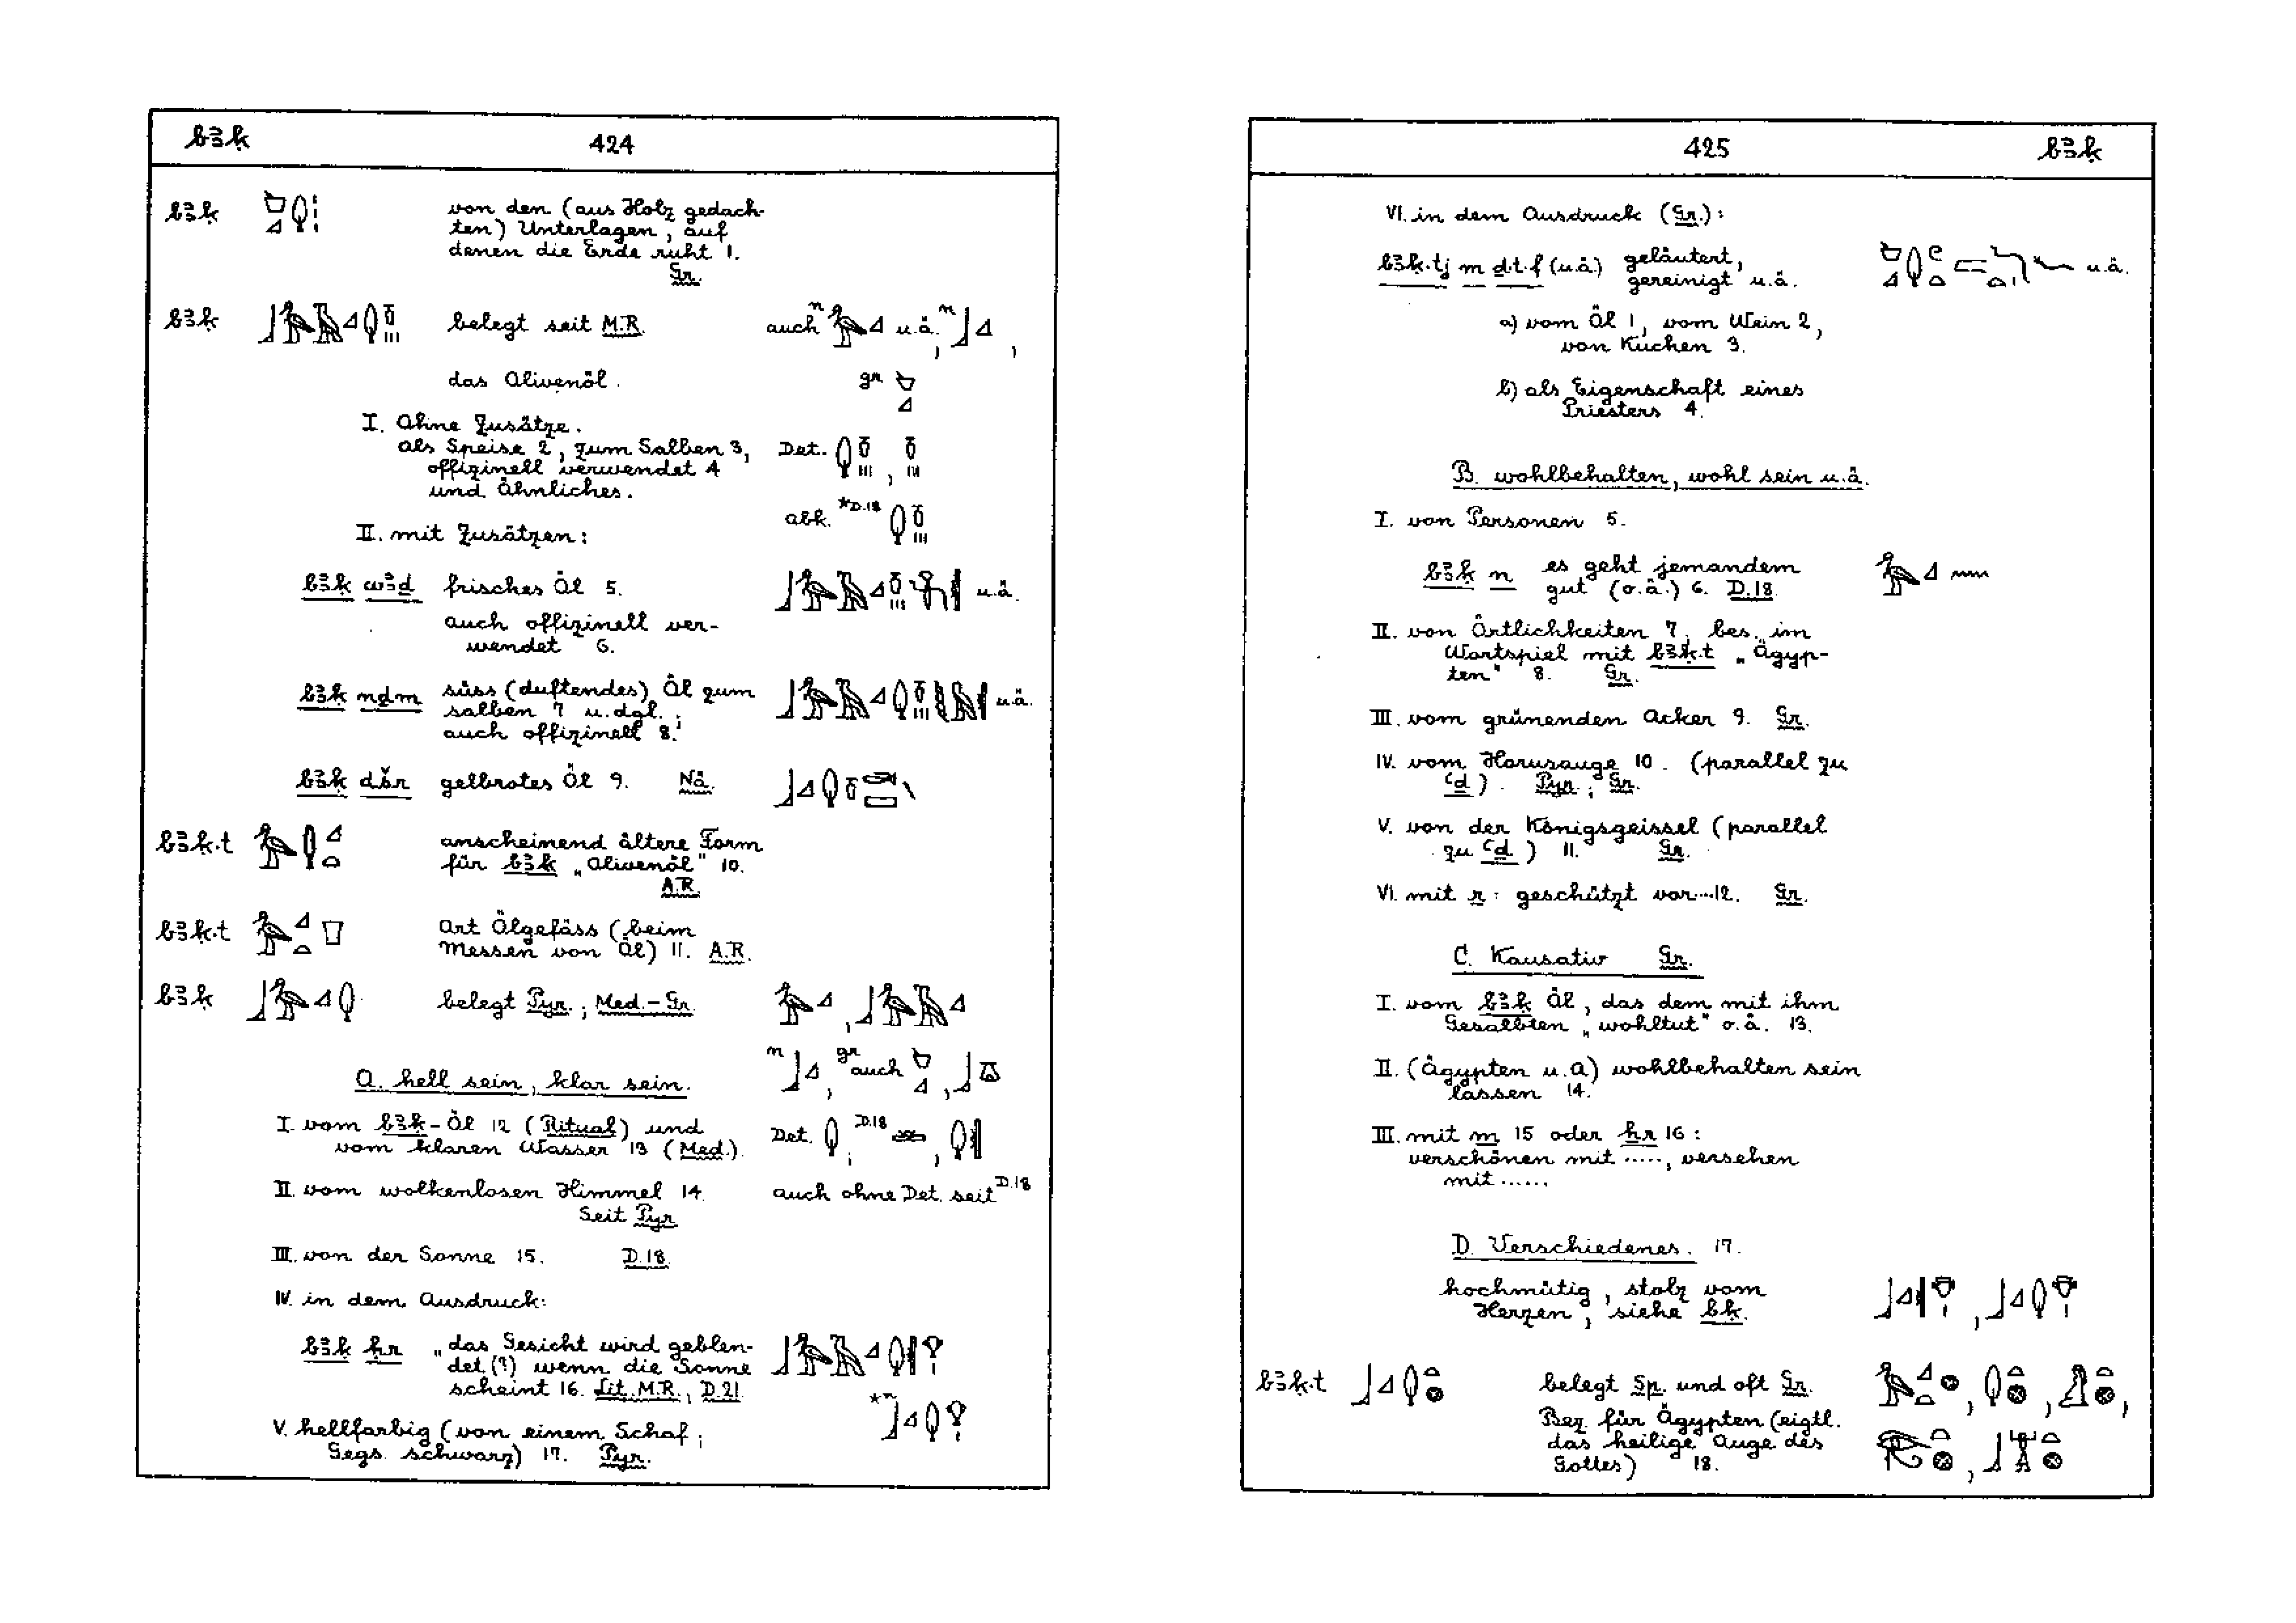 bꜣḳ 424
bꜣḳ von den (aus Holz gedach-
ten) Unterlagen, auf
denen die Erde ruht 1.
Gr.
bꜣḳ belegt seit M.R. auch n u.ä., n ,
das Olivenöl. gr
I. Ohne Zusätze.
als Speise 2, zum Salben 3, Det. ,
offizinell verwendet 4
und Ähnliches.
abk. *D.18
II. mit Zusätzen:
bꜣḳ wꜣḏ frisches Öl 5. u.ä.
auch offizinell ver-
wendet 6.
bꜣḳ nḏm süss (duftendes) Öl zum u.ä.
salben 7 u.dgl.;
auch offizinell 8.
bꜣḳ dšr gelbrotes Öl 9. Nä.
bꜣḳ.t anscheinend ältere Form
für bꜣḳ „Olivenöl" 10.
A.R.
bꜣḳ.t Art Ölgefäss (beim
Messen von Öl) 11. A.R.
bꜣḳ belegt Pyr.; Med.-Gr. ,
n , gr auch ,
A. hell sein, klar sein.
I. vom bꜣḳ-Öl 12 (Ritual) und Det. ; D.18 ,
vom klaren Wasser 13 (Med.).
II. vom wolkenlosen Himmel 14. auch ohne Det. seit D.18
Seit Pyr
III. von der Sonne 15. D.18.
IV. in dem Ausdruck:
bꜣḳ ḥr „das Gesicht wird geblen-
det (?) wenn die Sonne
scheint 16. Lit. M.R., D.21.
*n
V. hellfarbig (von einem Schaf;
Gegs. schwarz) 17. Pyr.
425 bꜣḳ
VI. in dem Ausdruck (Gr.):
bꜣḳ.tj m d.t.f (u.ä.) geläutert, u.ä.
gereinigt u.ä.
a) vom Öl 1, vom Wein 2,
von Kuchen 3.
b) als Eigenschaft eines
Priesters 4.
B. wohlbehalten, wohl sein u.ä.
I. von Personen 5.
bꜣḳ n es geht jemandem
gut (o.ä.) 6. D.18.
II. von Örtlichkeiten 7, bes. im
Wortspiel mit bꜣḳ.t „Ägyp-
ten" 8. Gr.
III. vom grünenden Acker 9. Gr.
IV. vom Horusauge 10. (parallel zu
ꜥḏ). Pyr.; Gr.
V. von der Königsgeissel (parallel
zu ꜥḏ) 11. Gr.
VI. mit r: geschützt vor...12. Gr.
C. Kausativ Gr.
I. vom bꜣḳ Öl, das dem mit ihm
Gesalbten „wohltut" o.ä. 13.
II. (Ägypten u.a) wohlbehalten sein
lassen 14.
III. mit m 15 oder ḥr 16:
verschönen mit ....., versehen
mit ......
D. Verschiedenes. 17.
hochmütig, stolz vom ,
Herzen, siehe bḳ.
bꜣḳ.t belegt Sp. und oft Gr. , , ,
Bez. für Ägypten (eigtl.
das heilige Auge des ,
Gottes) 18.